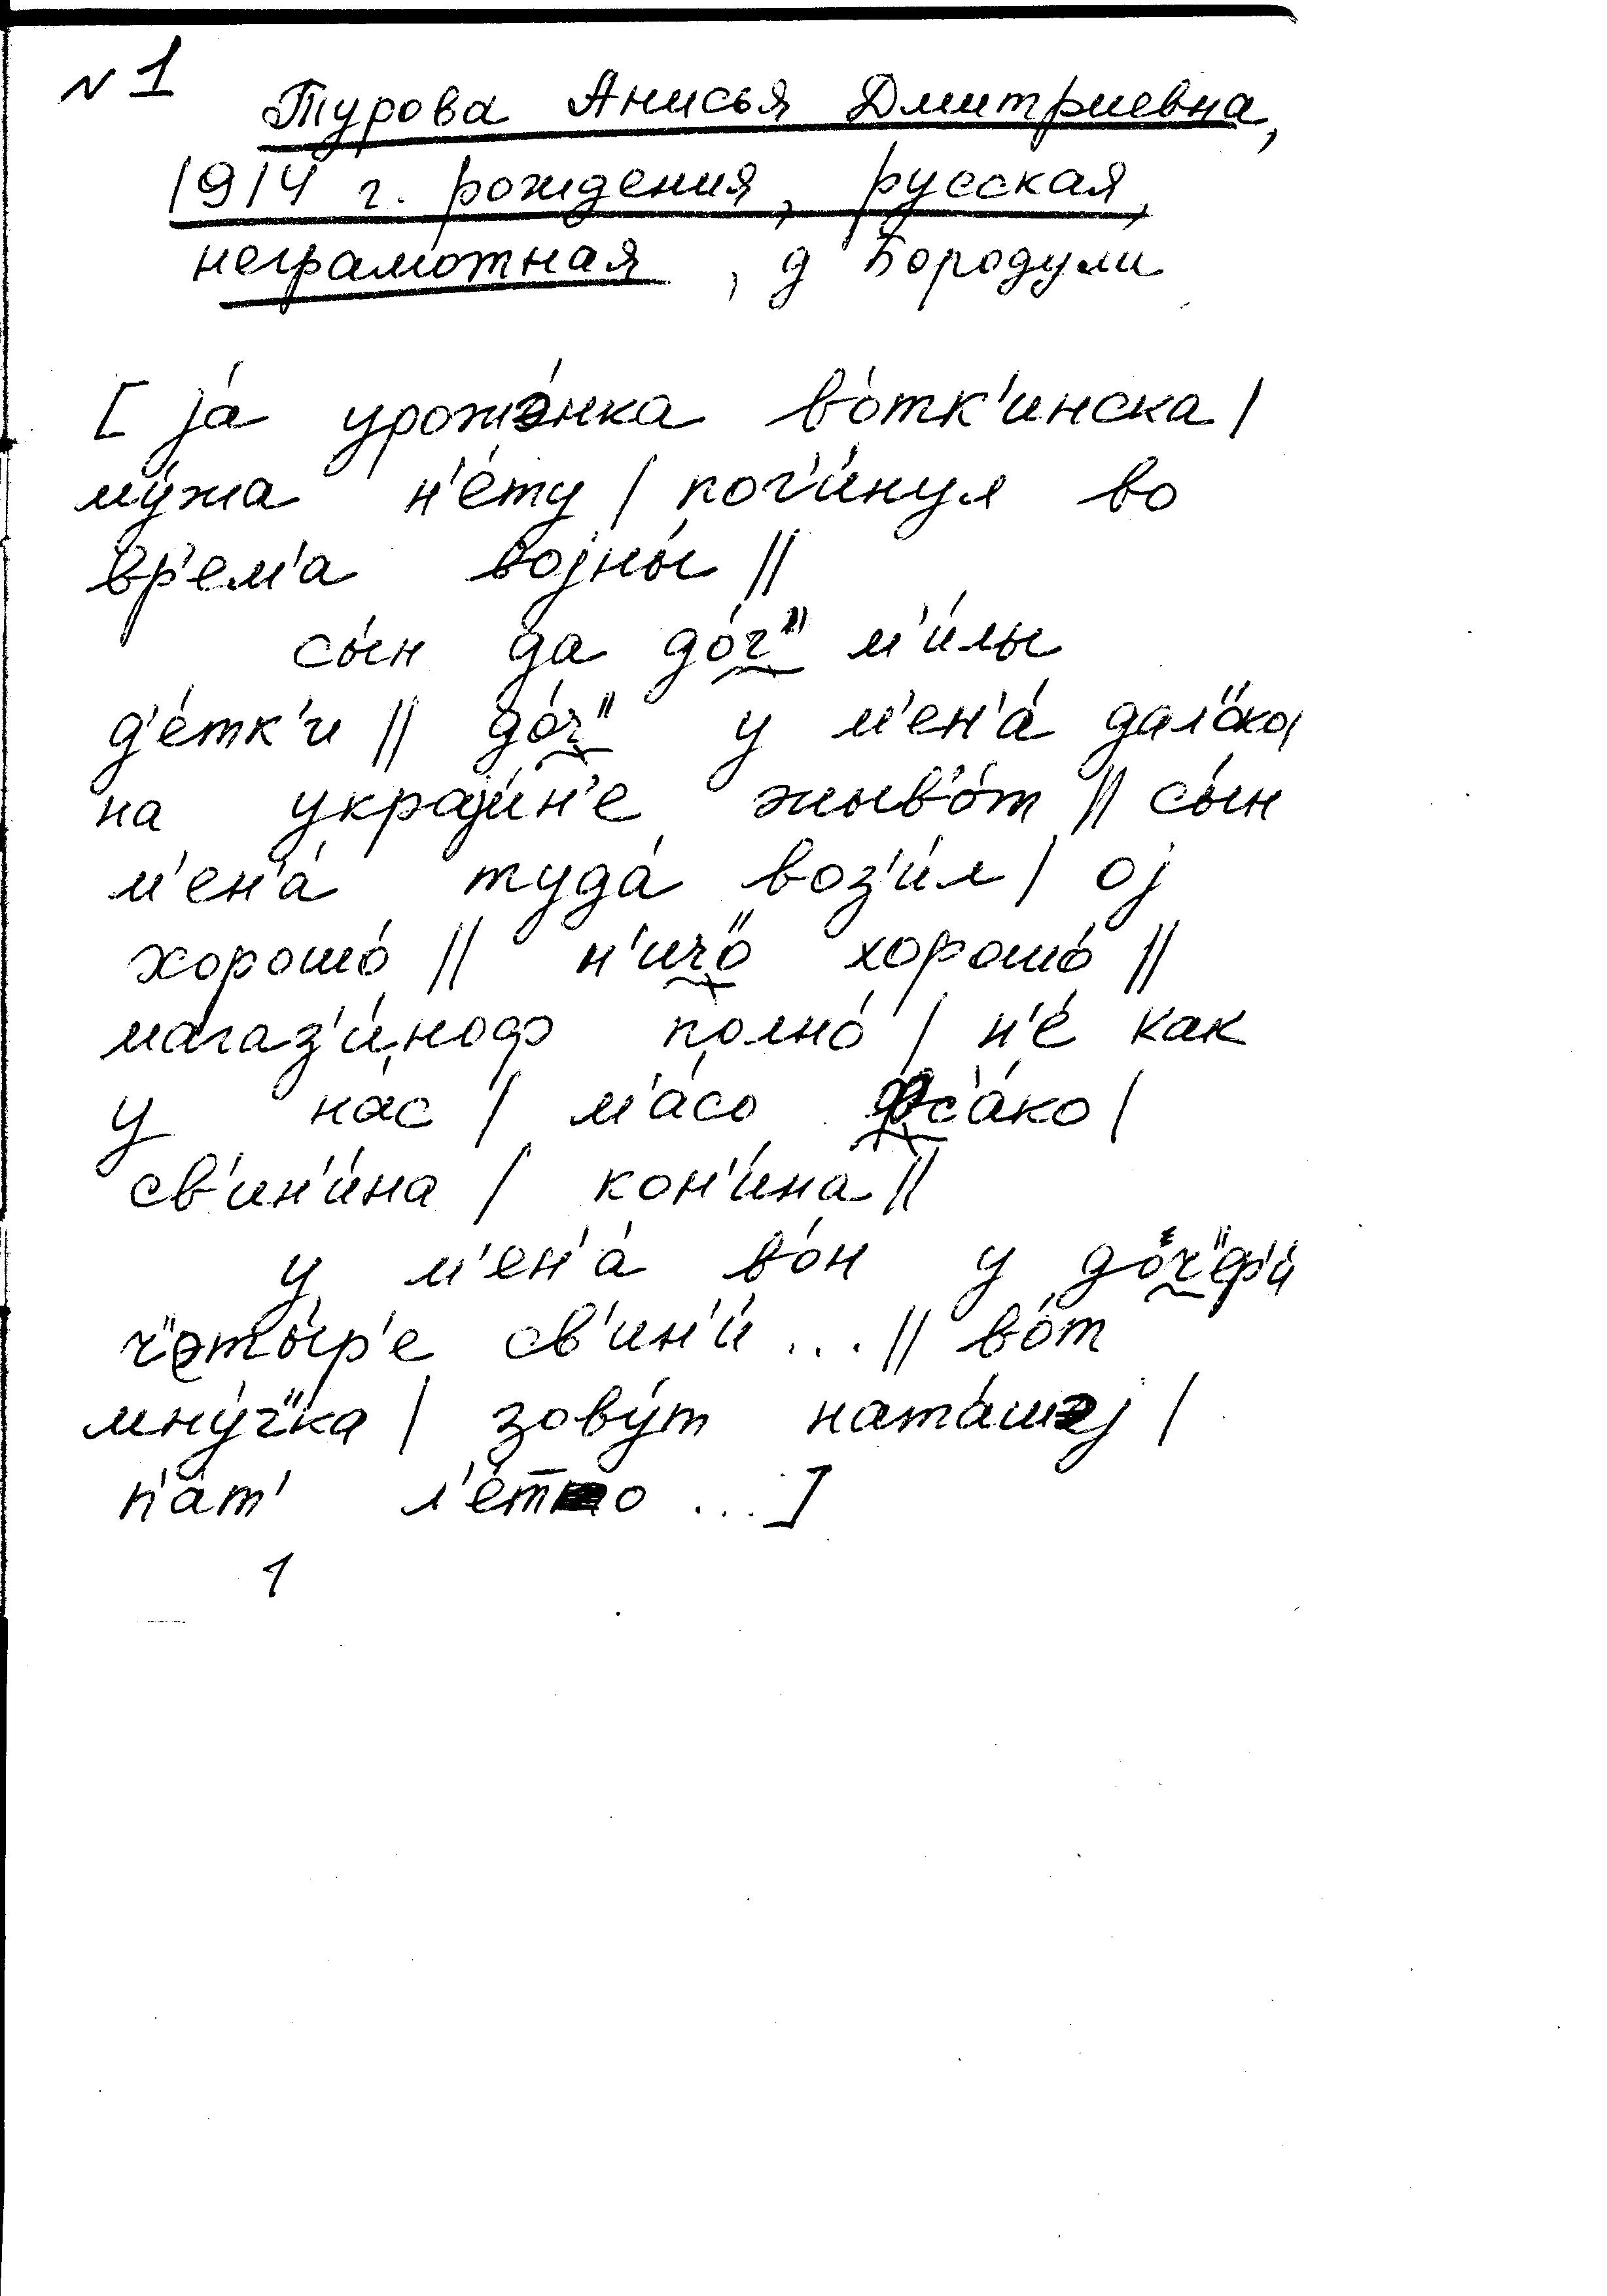 N 1
Турова Анисья Дмитриевна,
1914 г. рождения, русская,
неграмотная, д Бородули
[ jа́ урожэ́нка во́тк'инска /
му́жа н'е́ту / пог'и́нул во
вр'ем'а воjны́ //
сы́н да до́ч" м'и́лы
д'е́тк'и // до́ч" у м'ен'а́ дал'о́ко/
на украjи́н'е жыв'о́т // сы́н
м'ен'а́ туда́ воз'и́л / оj
хорошо́ // н'ич"о́ хорошо́ //
магаз'и́ноф полно́ / н'е́ как
у на́с / м'а́со фс'а́ко /
св'ин'и́на / кон'и́на //
у м'ен'а́ во́н у до́ч"ер'и
ч"эты́р'е св'ин'и́ ... // во́т
мну́ч"ка / зову́т ната́шэj /
п'а́т' л'е́т о ... ]
1